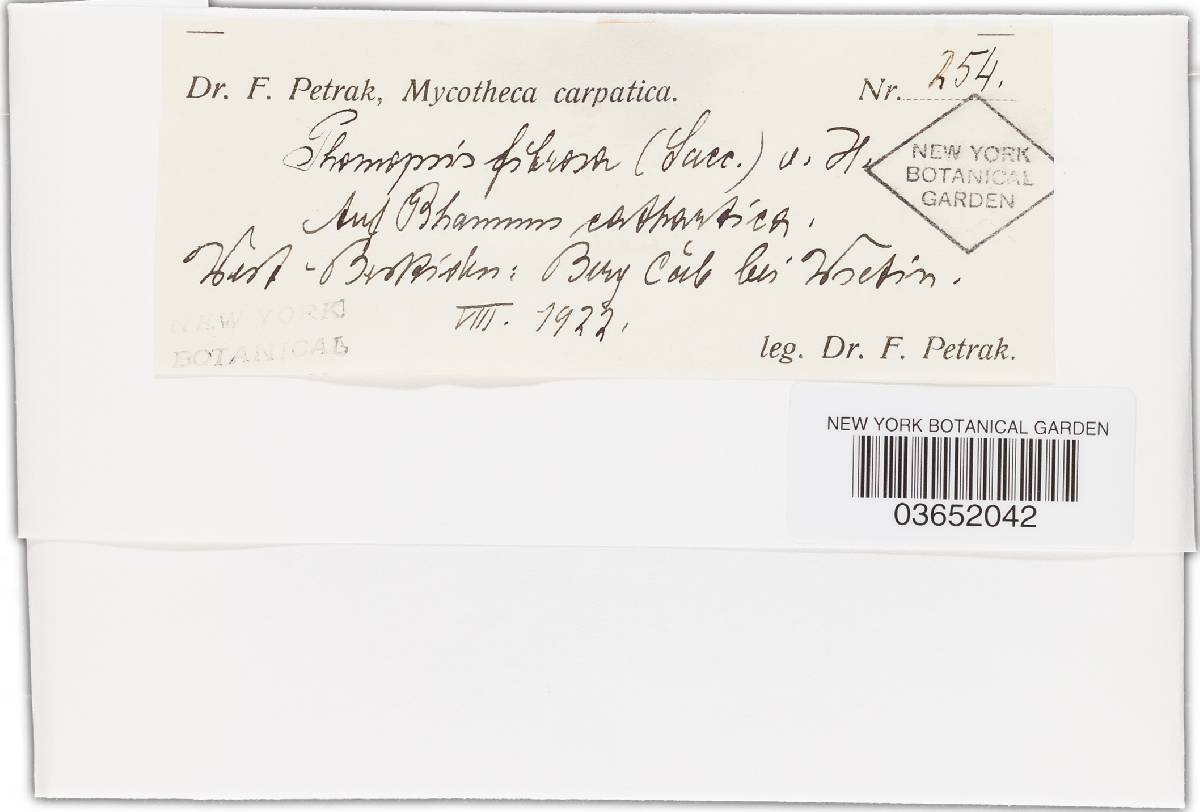 Dr. F. Petrak, Mycotheca carpatica. Nr. 254.
Phomopsis fibrosa (Sacc.) v. H.
Auf Rhamnus cathartica.
West-Beskiden: Berg Cáb bei Wsetin.
VIII. 1922.
leg. Dr. F. Petrak.
NEW YORK
BOTANICAL
GARDEN
NEW YORK
BOTANICAL
NEW YORK BOTANICAL GARDEN
03652042